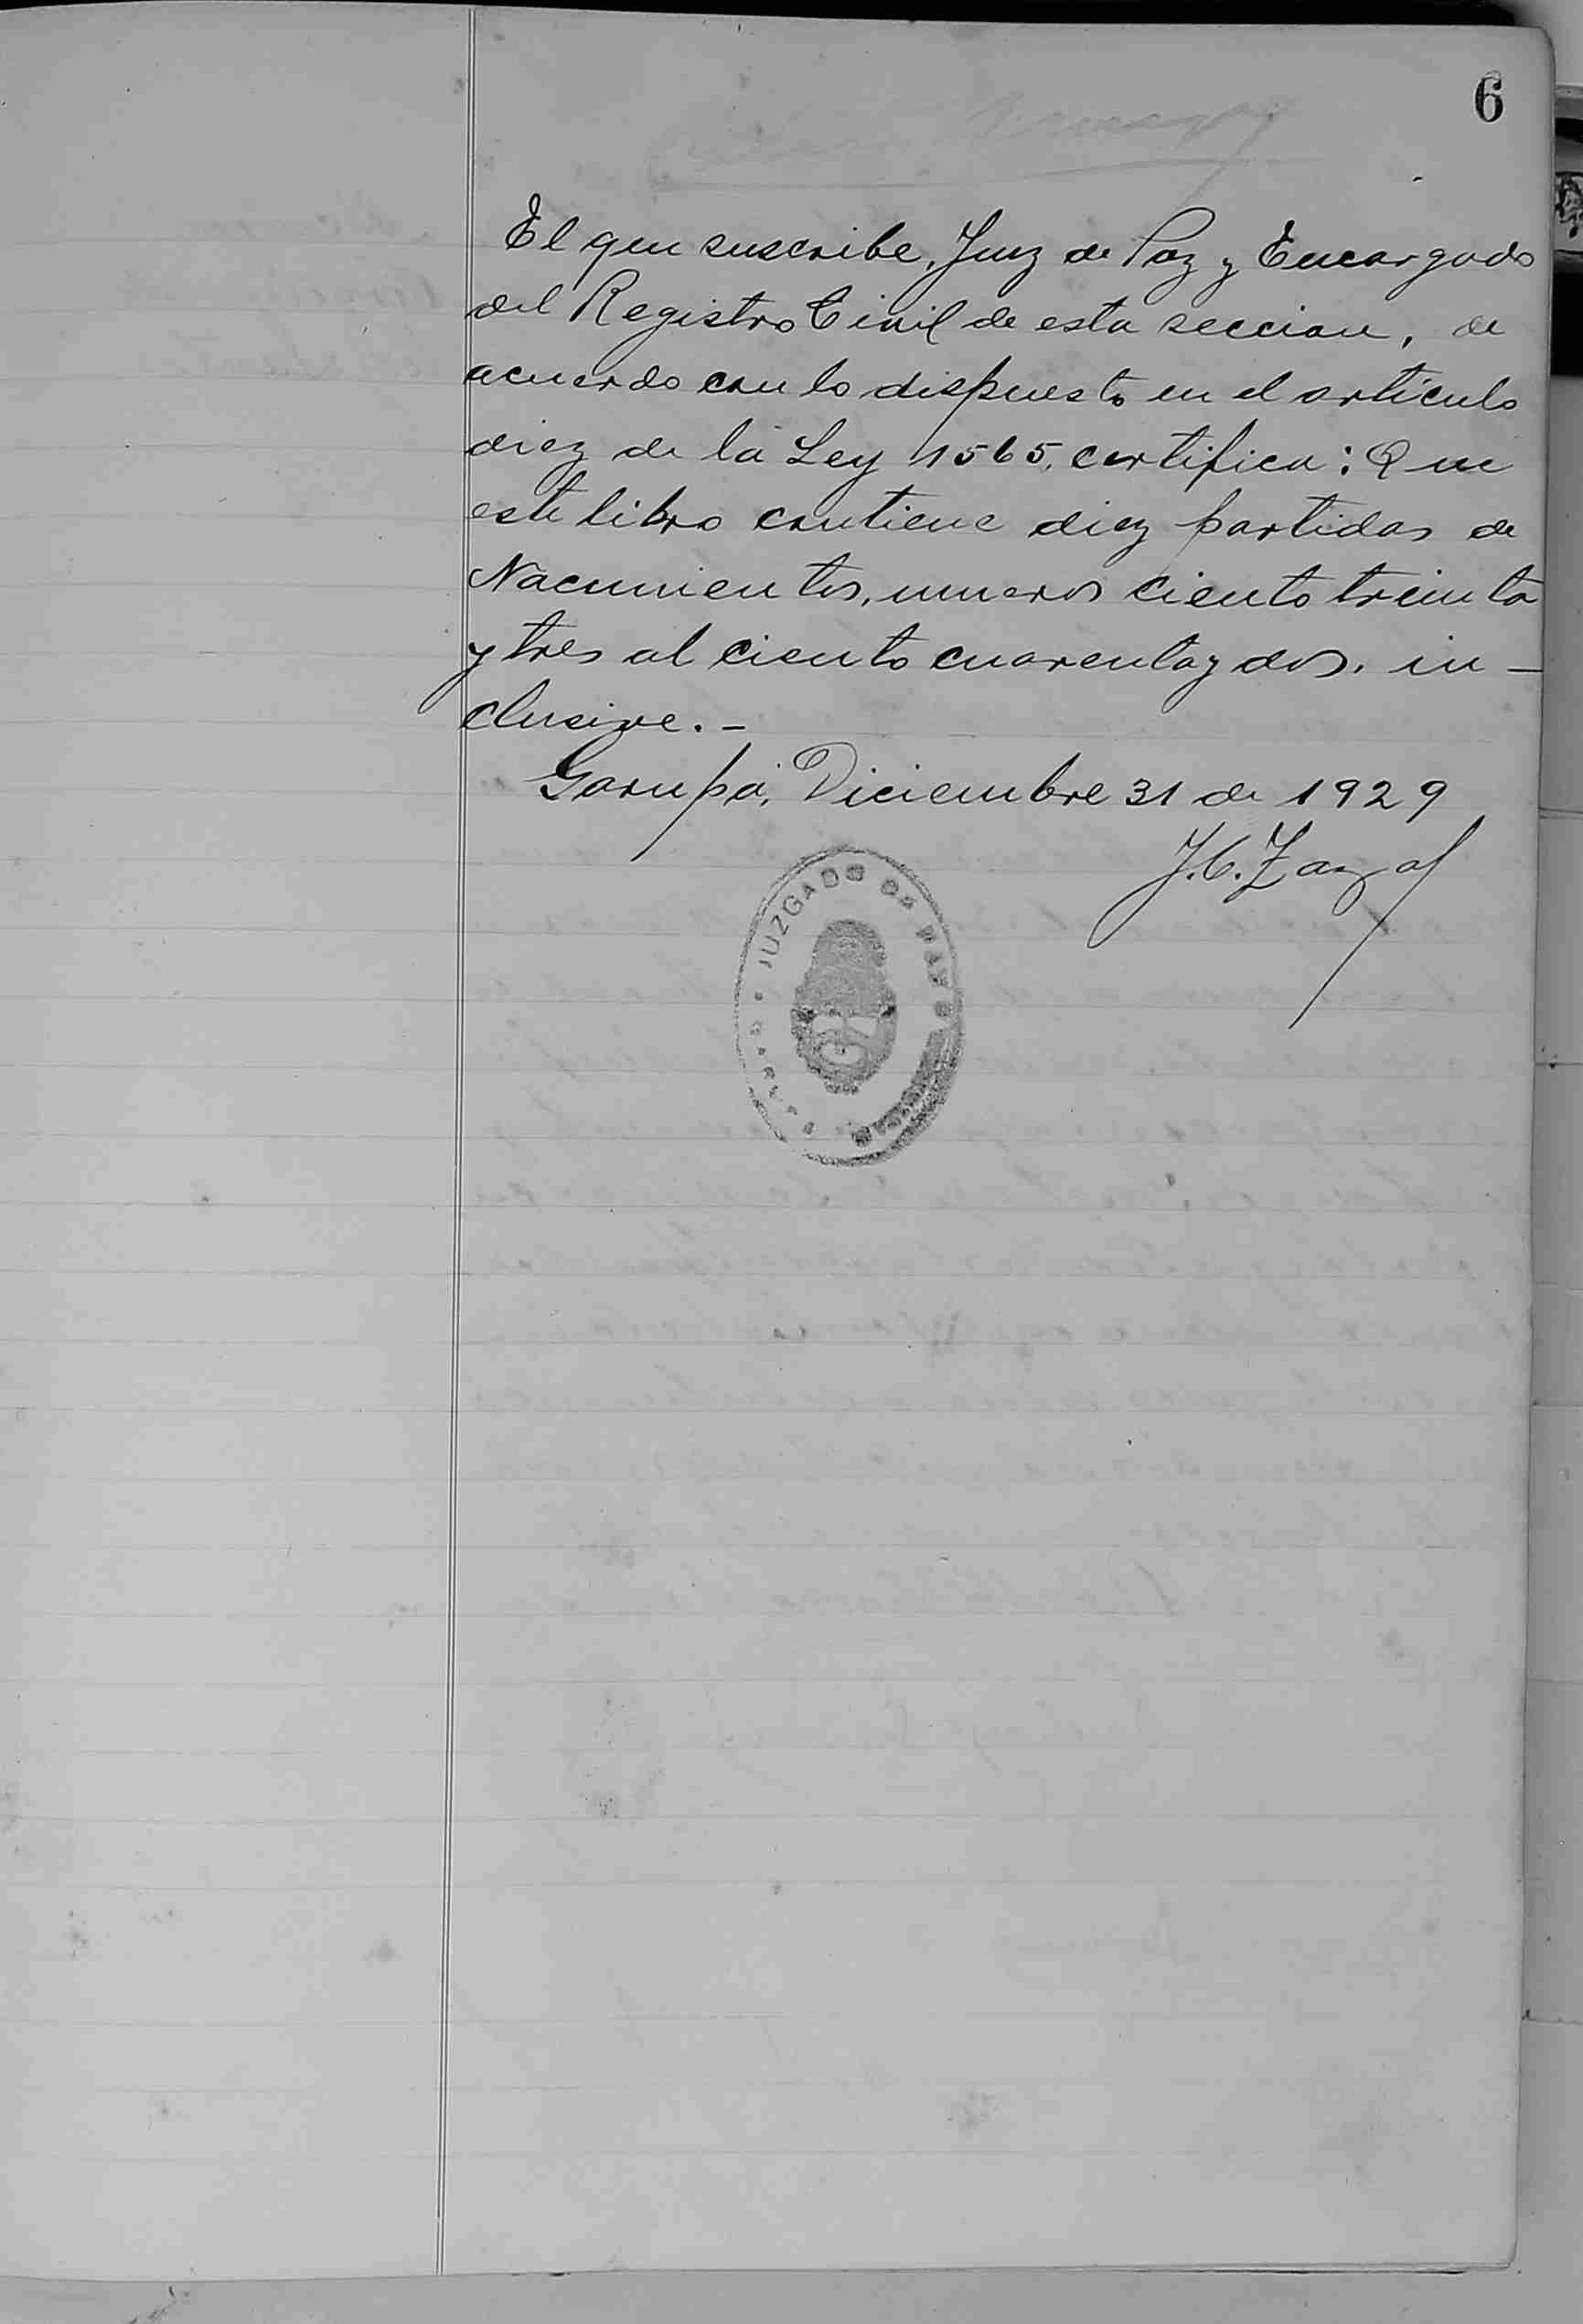 6
El que suscribe, Juez de Paz y Encargado
del Registro Civil de esta seccion, de
acuerdo con lo dispuesto en el artículo
diez de la Ley 1565, certifica: Que
este libro contiene diez partidas de
Nacimientos, numeros ciento treinta
y tres al ciento cuarenta y dos, in-
clusive.-
Garupá, Diciembre 31 de 1929
JUZGADO DE PAZ
GARUPA